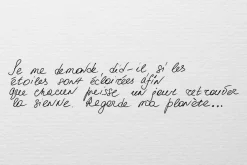 Je me demande, dit-il, si les
étoiles sont éclairées afin
que chacun puisse un jour retrouver
la sienne. Regarde ma planète...